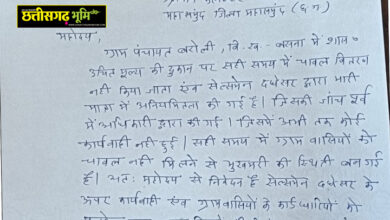 छत्तीसगढ़ भूमि
महासमुंद जिला महासमुंद (छ.ग)
महोदय,
ग्राम पंचायत बरोली, वि.ख.- बसना में शास.
उचित मूल्य की दुकान पर सही समय में चावल वितरन
नहीं किया जाता एवं सेल्समेन दधेसर द्वारा भारी
मात्रा में अनियमितता की गई है। जिसकी जांच पूर्व
में अधिकारी द्वारा की गई। जिसमें अभी तक कोई
कार्यवाही नहीं हुई। सही समय में ग्राम वासियों को
चावल नहीं मिलने से भुखमरी की स्थिती बन गई
है। अतः महोदय से निवेदन है सेल्समेन दधेसर के
ऊपर कार्यवाही एवं ग्रामवासियों के कार्डधारियों को